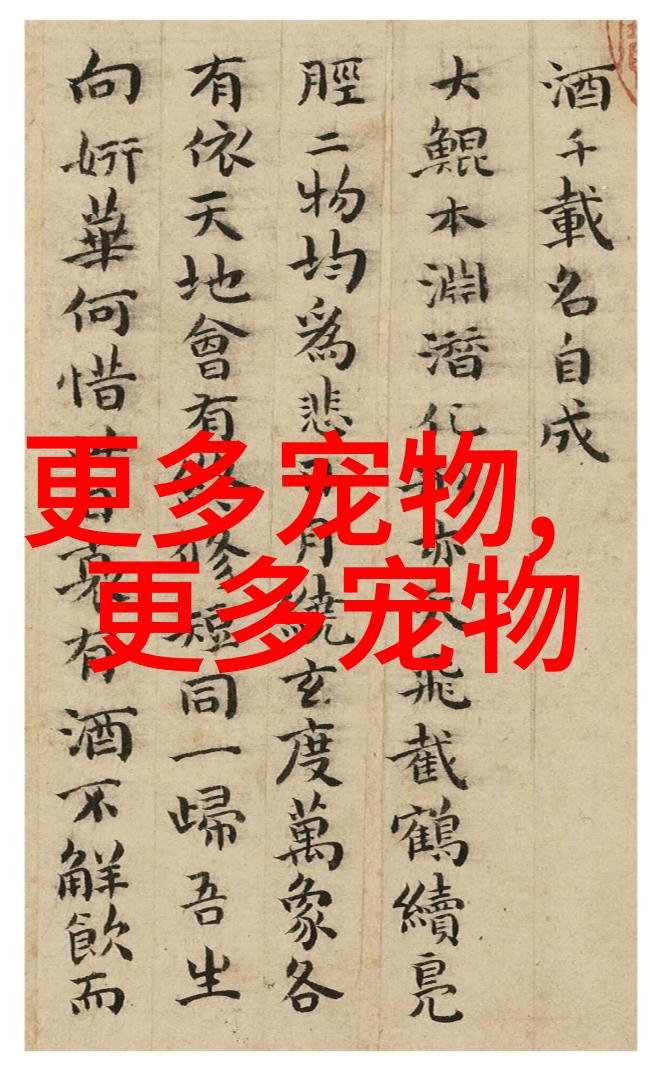 酒千載名自成
大鯤本淵潛化亦天飛截鶴續鳧
脛二物均爲悲月繞玄度萬象各
有依天地會有修短同一歸吾生
向姸華何惜日衰有酒不解飲而
更多宠物,
更多宠物